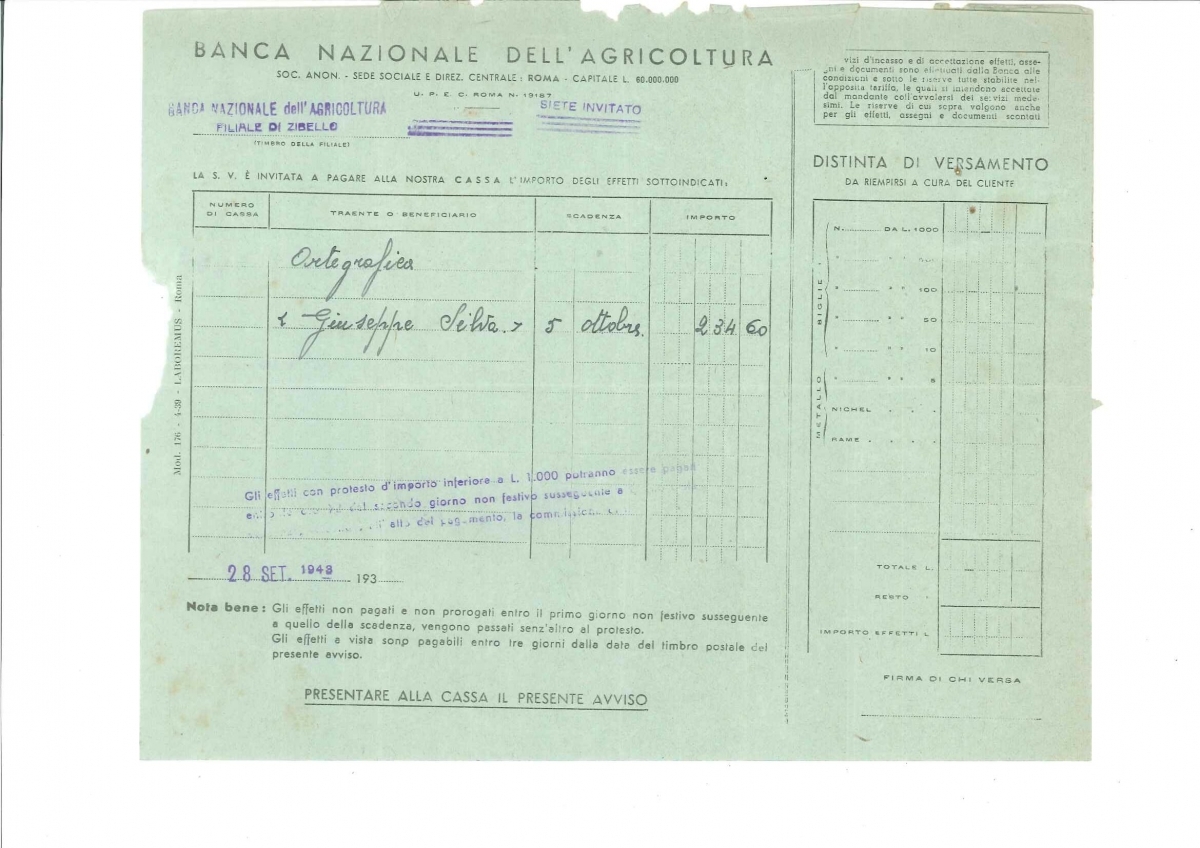 BANCA NAZIONALE DELL'AGRICOLTURA
SOC. ANON. - SEDE SOCIALE E DIREZ. CENTRALE: ROMA - CAPITALE L. 60.000.000
U. P. E. C. ROMA N. 19187
BANCA NAZIONALE dell'AGRICOLTURA
FILIALE DI ZIBELLO
(TIMBRO DELLA FILIALE)
SIETE INVITATO
LA S. V. È INVITATA A PAGARE ALLA NOSTRA CASSA L'IMPORTO DEGLI EFFETTI SOTTOINDICATI:
NUMERO DI CASSA TRAENTE O BENEFICIARIO SCADENZA IMPORTO
Ortegrafica
« Giuseppe Silva » 5 ottobre. 234 60
Gli effetti con protesto d'importo inferiore a L. 1.000 potranno essere pagati
secondo giorno non festivo susseguente a
del pagamento, la commissione
28 SET. 1943 193
Nota bene: Gli effetti non pagati e non prorogati entro il primo giorno non festivo susseguente
a quello della scadenza, vengono passati senz'altro al protesto.
Gli effetti a vista sono pagabili entro tre giorni dalla data del timbro postale del
presente avviso.
PRESENTARE ALLA CASSA IL PRESENTE AVVISO
Mod. 176 - 4-39 - LABOREMUS - Roma
vizi d'incasso e di accettazione effetti, asse-
gni e documenti sono effettuati dalla Banca alle
condizioni e sotto le riserve tutte stabilite nel-
l'apposita tariffa, le quali si intendono accettate
dal mandante coll'avvolersi dei servizi mede-
simi. Le riserve di cui sopra valgono anche
per gli effetti, assegni e documenti scontati
DISTINTA DI VERSAMENTO
DA RIEMPIRSI A CURA DEL CLIENTE
BIGLIE.
N. DA L. 1000
" " " 100
" " " 50
" " " 10
METALLO
" " " 5
NICHEL
RAME
TOTALE L.
RESTO
IMPORTO EFFETTI L.
FIRMA DI CHI VERSA